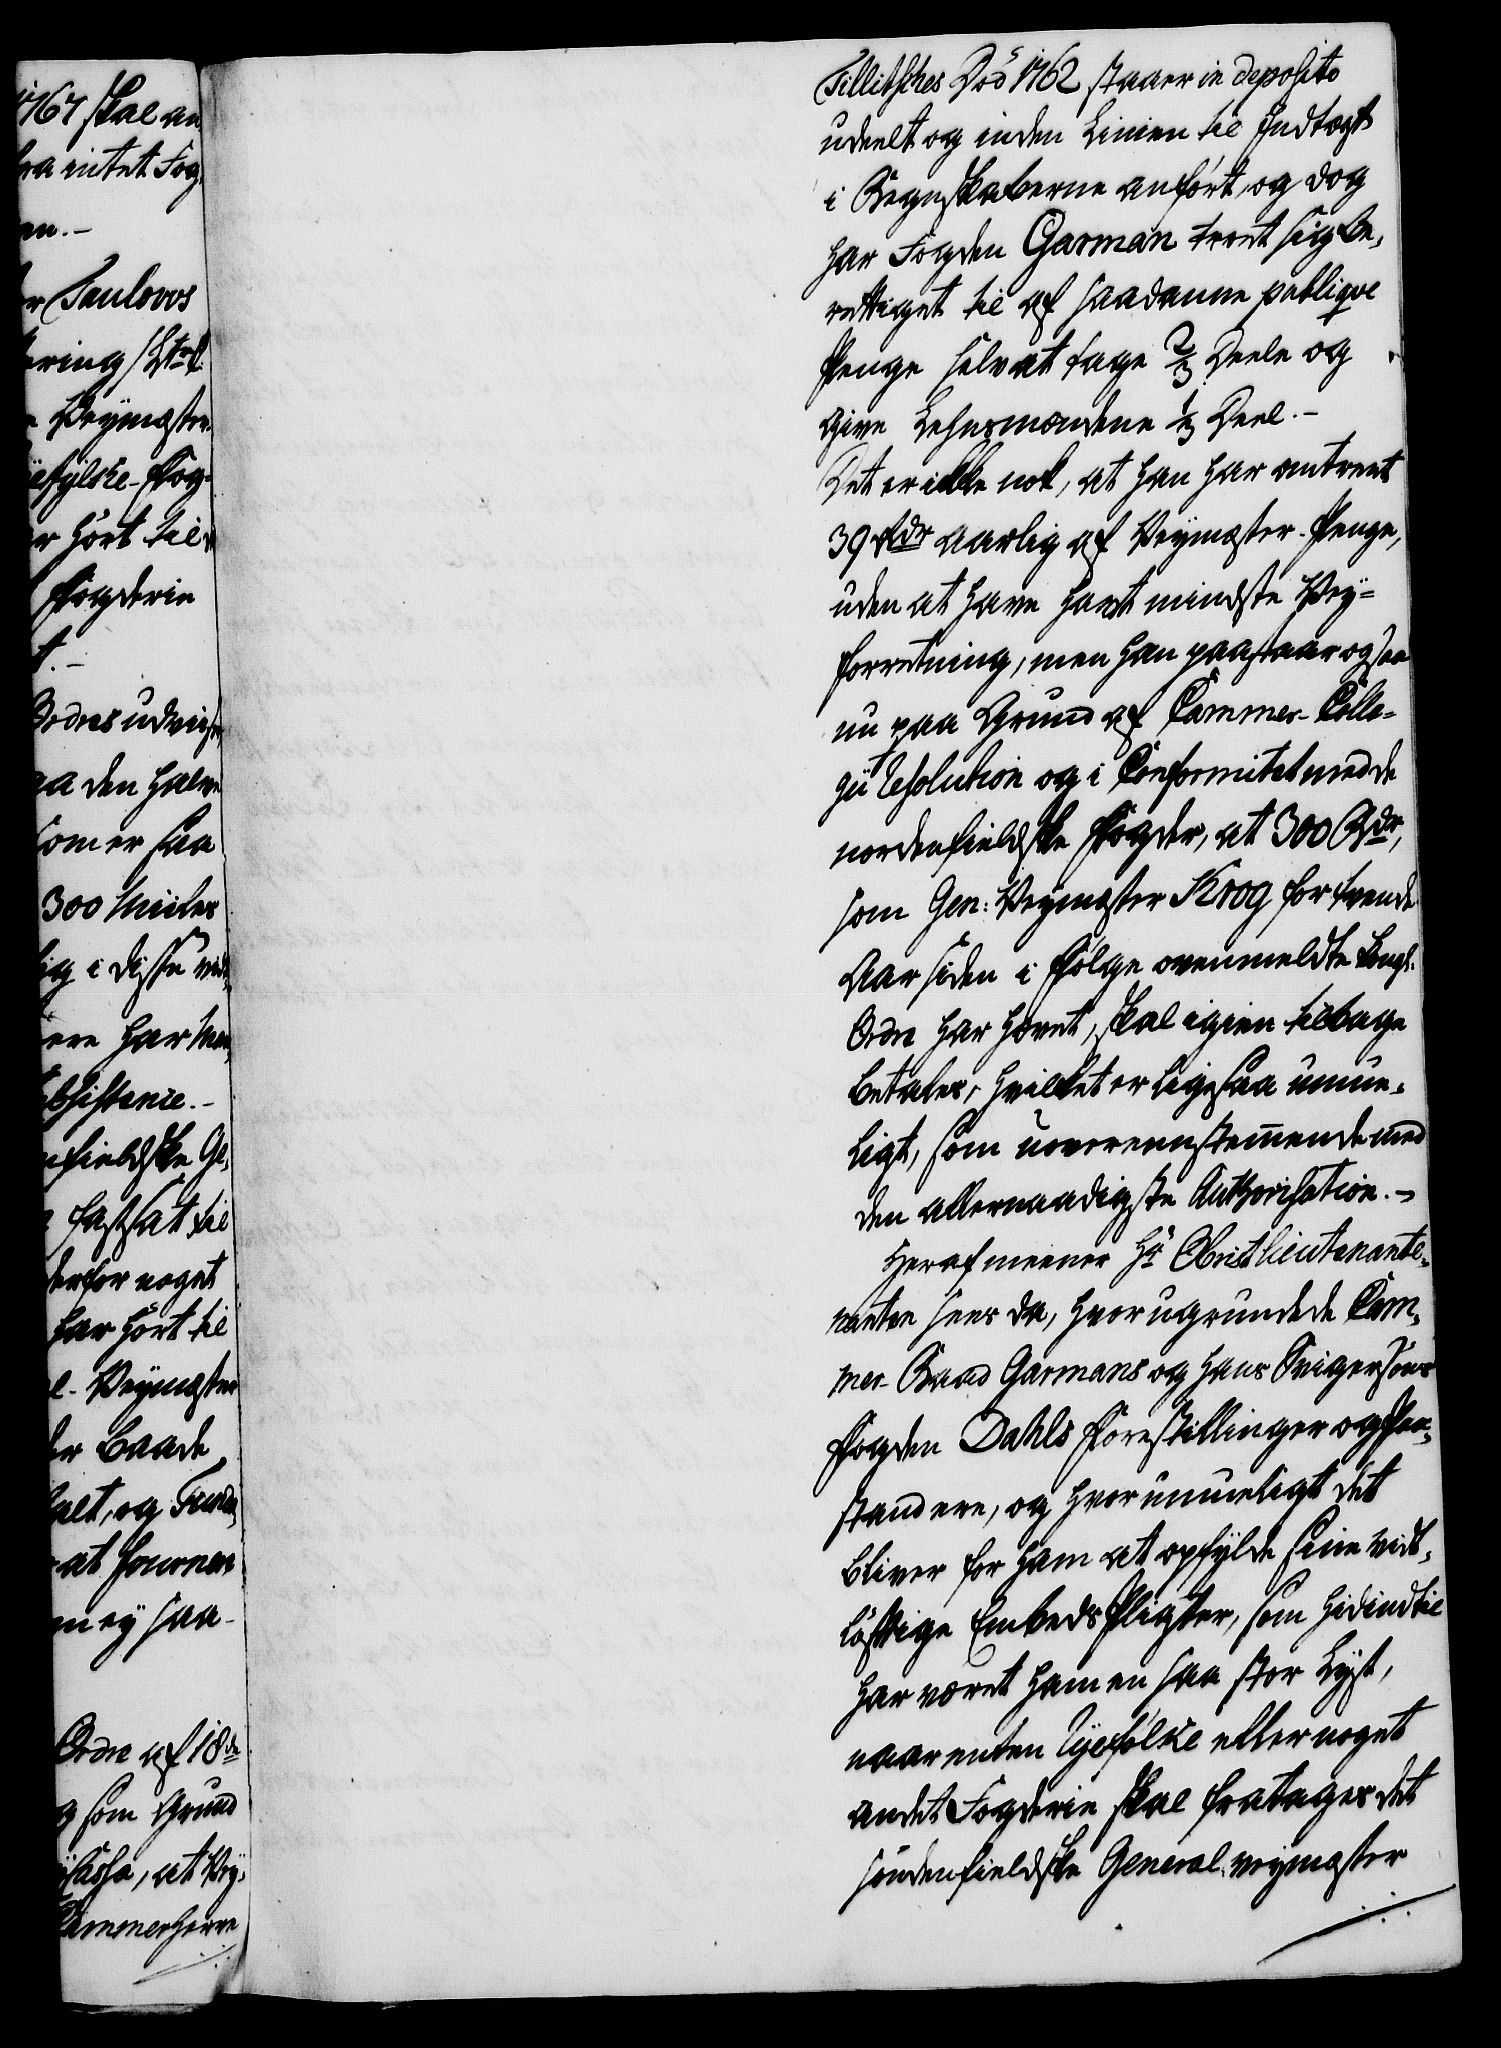 1767 skal an
fra intet Fog,
en.-
er Taulovs
ering
Veÿmester
efylske-Fog-
er hört til
Fogderie
t.-
Ordres udvise
aa den halve
som er saa
300 Miiles
ig i disse
ere har
bsistence.-
nfieldske Ge,
fastsat til
derfor noget
har hört til
l-Veÿmester
er baade
alt, og
at fourner
m eÿ saa-
Ordre af 18de
g som Grund
Cassa, at Veÿ-
Kammerherre
Tillitsches Död 1762 staaer in deposito
udeelt og inden Linien til Indtægt
i Regnskaberne anfört, og dog
har Fogden Garman troet sig be,
rettiget til af saadanne publiqve
Penge selv at tage 2/3 Deele og
give Lehnsmændene 1/3 Deel.-
Det er ikke nok, at han har omtrent
39 Rdr aarlig af Veÿmester-Penge,
uden at have havt mindste Veÿ=
forretning, men han paastaar ogsaa
nu paa Grund af Cammer-Colle=
gii Resolution og i Conformitet med de
nordenfieldske Fogder, at 300 Rdr,
som Gen: Veÿmester Krog for tvende
Aar siden i Fölge ovenmeldte Kongl:
Ordre har hævet, skal igien tilbage
betales, hvilket er ligesaa umue,
ligt, som uoverensstemmende med
den allernaadigste Authorisation.-
Heraf meener Hr Obristlieutenante,
nanten sees da, hvor ugrundede Cam,
mer-Raad Garmans og hans Svigersöns
Fogden Dahls Forestillinger og Paa,
standere, og hvor umueligt det
bliver for ham at opfÿlde sine vidt,
löftige Embeds Pligter, som hidindtil
har været ham en saa stor Lÿst,
naar enten Rÿefÿlke eller noget
andet Fogderie skal fratages det
söndenfieldske General-veÿmester